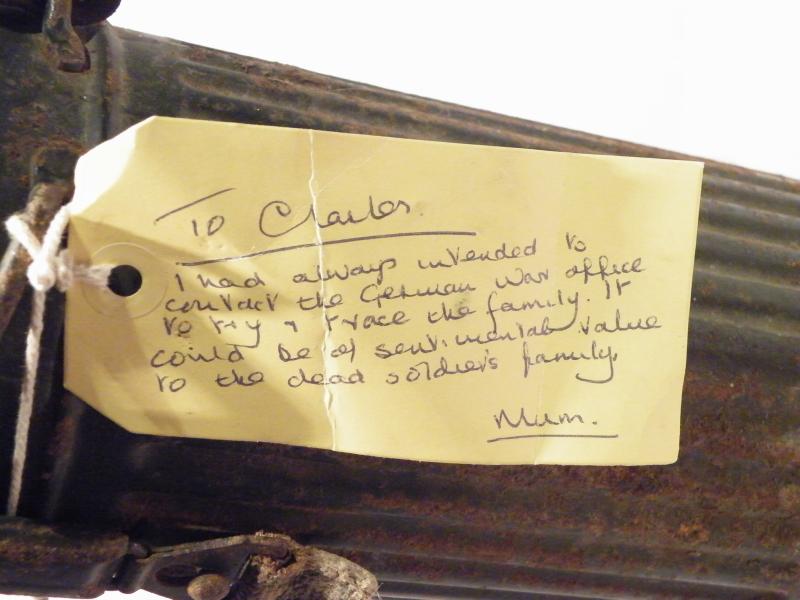 To Charles.
I had always intended to
contact the German War office
to try & trace the family. It
could be of sentimental value
to the dead soldier's family.
Mum.